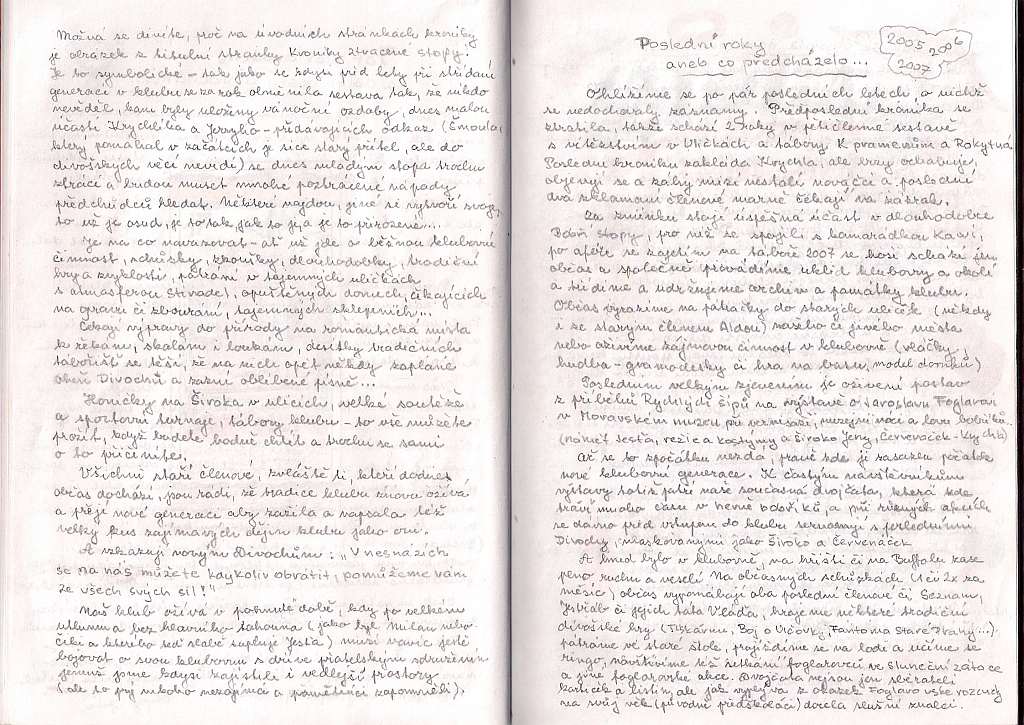 Možná se divíte, proč na úvodních stránkách kroniky
je obrázek z titulní stránky Kroniky Ztracené stopy.
Je to symbolické – tak jako se kdysi před lety při střídání
generací v klubu se za rok obměnila sestava tak, že nikdo
nevěděl, kam byly uloženy vánoční ozdoby, dnes malou
účastí Krychlíka a Jerryho – předávajících odkaz (Šmoula,
který pomáhal v začátcích je sice starý přítel, ale do
divošských věcí nevidí) se dnes mladým stopa trochu
ztrácí a budou muset mnohé poztrácené nápady
předchůdců hledat. Některé najdou, jiné si vytvoří svoje,
to už je osud, je to tak, jak to je a je to přirozené...
Je na co navazovat – ať už jde o běžnou klubovní
činnost, schůzky, kroniky, dlouhodobky, tradiční
hry a zvyklosti, pátrání v tajemných uličkách
s atmosférou Stínadel, opuštěných domech, čekajících
na opravu či zbourání, tajemných sklepních...
Čekají výpravy do přírody na romantická místa
k řekám, skalám i loukám, desítky tradičních
tábořišť se těší, že na nich opět někdy zaplane
oheň Divochů a zazní oblíbené písně...
Honičky na Široka v ulicích, velké soutěže
a sportovní turnaje, tábory klubu – to vše můžete
prožít, když budete hodně chtít a trochu se sami
o to přičiníte.
Všichni staří členové, zvláště ti, kteří dodnes
občas dochází, jsou rádi, že tradice klubu znovu ožívá
a přejí nové generaci aby zažila a napsala též
velký kus zajímavých dějin klubu jako oni.
A vzkazují novým Divochům: „V nesnázích
se na nás můžete kdykoliv obrátit, pomůžeme vám
ze všech svých sil!"
Náš klub ožívá v podivné době, kdy po velkém
útlumu a bez hlavního tahouna (jako byl Milan nebo
Čiki a kterého teď slabě supluje Jesťa) musí navíc ještě
bojovat o svou klubovnu s dříve přátelským sdružením
jemuž jsme kdysi zajistili i vedlejší prostory
(ale to prý nikoho nezajímá a pamětníci zapomněli).
Poslední roky
aneb co předcházelo...
2005 2006
2007
Ohlížíme se po pár posledních letech, o nichž
se nedochovaly záznamy. Předposlední kronika se
ztratila, takže schází 2 roky v pětičlenné sestavě
s vítězstvím v Uličkách a tábory K pramenům a Rokytná.
Poslední kroniku zakládá Krychla, ale brzy ochabuje,
objevují se a záhy mizí nestálí nováčci a poslední
dva zklamaní členové marně čekají na zázrak.
Za zmínku stojí úspěšná účast v dlouhodobce
Dóň stopy, pro níž se spojili s kamarádkou Kawi,
po aféře se zajetím na táboře 2007 se koší schází jen
občas a společně provádíme úklid klubovny a okolí
a třídíme a udržujeme archiv a památky klubu.
Občas vyrazíme na pátračky do starých uliček (někdy
i se starým členem Aldou) našeho či jiného města
nebo oživíme zájmovou činnost v klubovně (vláčky,
hudba – gramodesky či hra na basu, model domků)
Posledním velkým zjevením je oživení postav
z příběhů Rychlých šípů na výstavě o Jaroslavu Foglarovi
v Moravském muzeu při vernisáži, muzejní noci a lovu bobříků.
(námět Jesťa, režie a kostýmy a Široko Jerry, Červenáček – Krychla)
Ač se to zpočátku nezdá, právě zde je zasazen počátek
nové klubovní generace. K častým návštěvníkům
výstavy totiž patří naše současná dvojčata, která zde
tráví mnoho času v herně bobříků, a při různých akcích
se dávno před vstupem do klubu seznamují s posledními
Divochy, maskovanými jako Široko a Červenáček
A hned bylo v klubovně, na hřišti či na Buffalu zase
plno ruchu a veselí. Na občasných schůzkách (1 či 2x za
měsíc) občas vypomáhají oba poslední členové či Seznam,
Jestřáb či jejich táta Vláďa, hrajeme některé tradiční
divošské hry (Tiskárnu, Boj o Vlčovky, Fantoma Staré Prahy...)
pátráme ve staré škole, projíždíme se na lodi a učíme se
ringo, navštívíme též setkání foglarovců ve Sluneční zátoce
a jiné foglarovské akce. Dvojčata nejsou jen sběrateli
kartiček a listin, ale jak vyplývá z otázek Foglarovské rozcuchy
na svůj věk (původně předškoláci) docela slušní znalci.